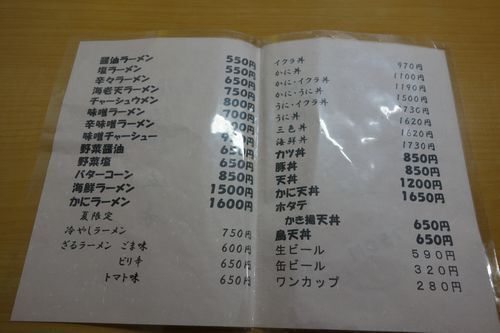 醤油ラーメン 550円
塩ラーメン 550円
辛々ラーメン 650円
海老天ラーメン 750円
チャーシュウメン 800円
味噌ラーメン 700円
辛味噌ラーメン
味噌チャーシュー
野菜醤油 650円
野菜塩 650円
バターコーン 850円
海鮮ラーメン 1500円
かにラーメン 1600円
夏限定
冷やしラーメン 750円
ざるラーメン ごま味 600円
ピリ辛 650円
トマト味 650円
イクラ丼 970円
かに丼 1100円
かに・イクラ丼 1190円
かに・うに丼 1500円
うに・イクラ丼 1730円
うに丼 1620円
三色丼 1620円
海鮮丼 1730円
カツ丼 850円
豚丼 850円
天丼 1200円
かに天丼 1650円
ホタテ
かき揚天丼 650円
鳥天丼 650円
生ビール 590円
缶ビール 320円
ワンカップ 280円